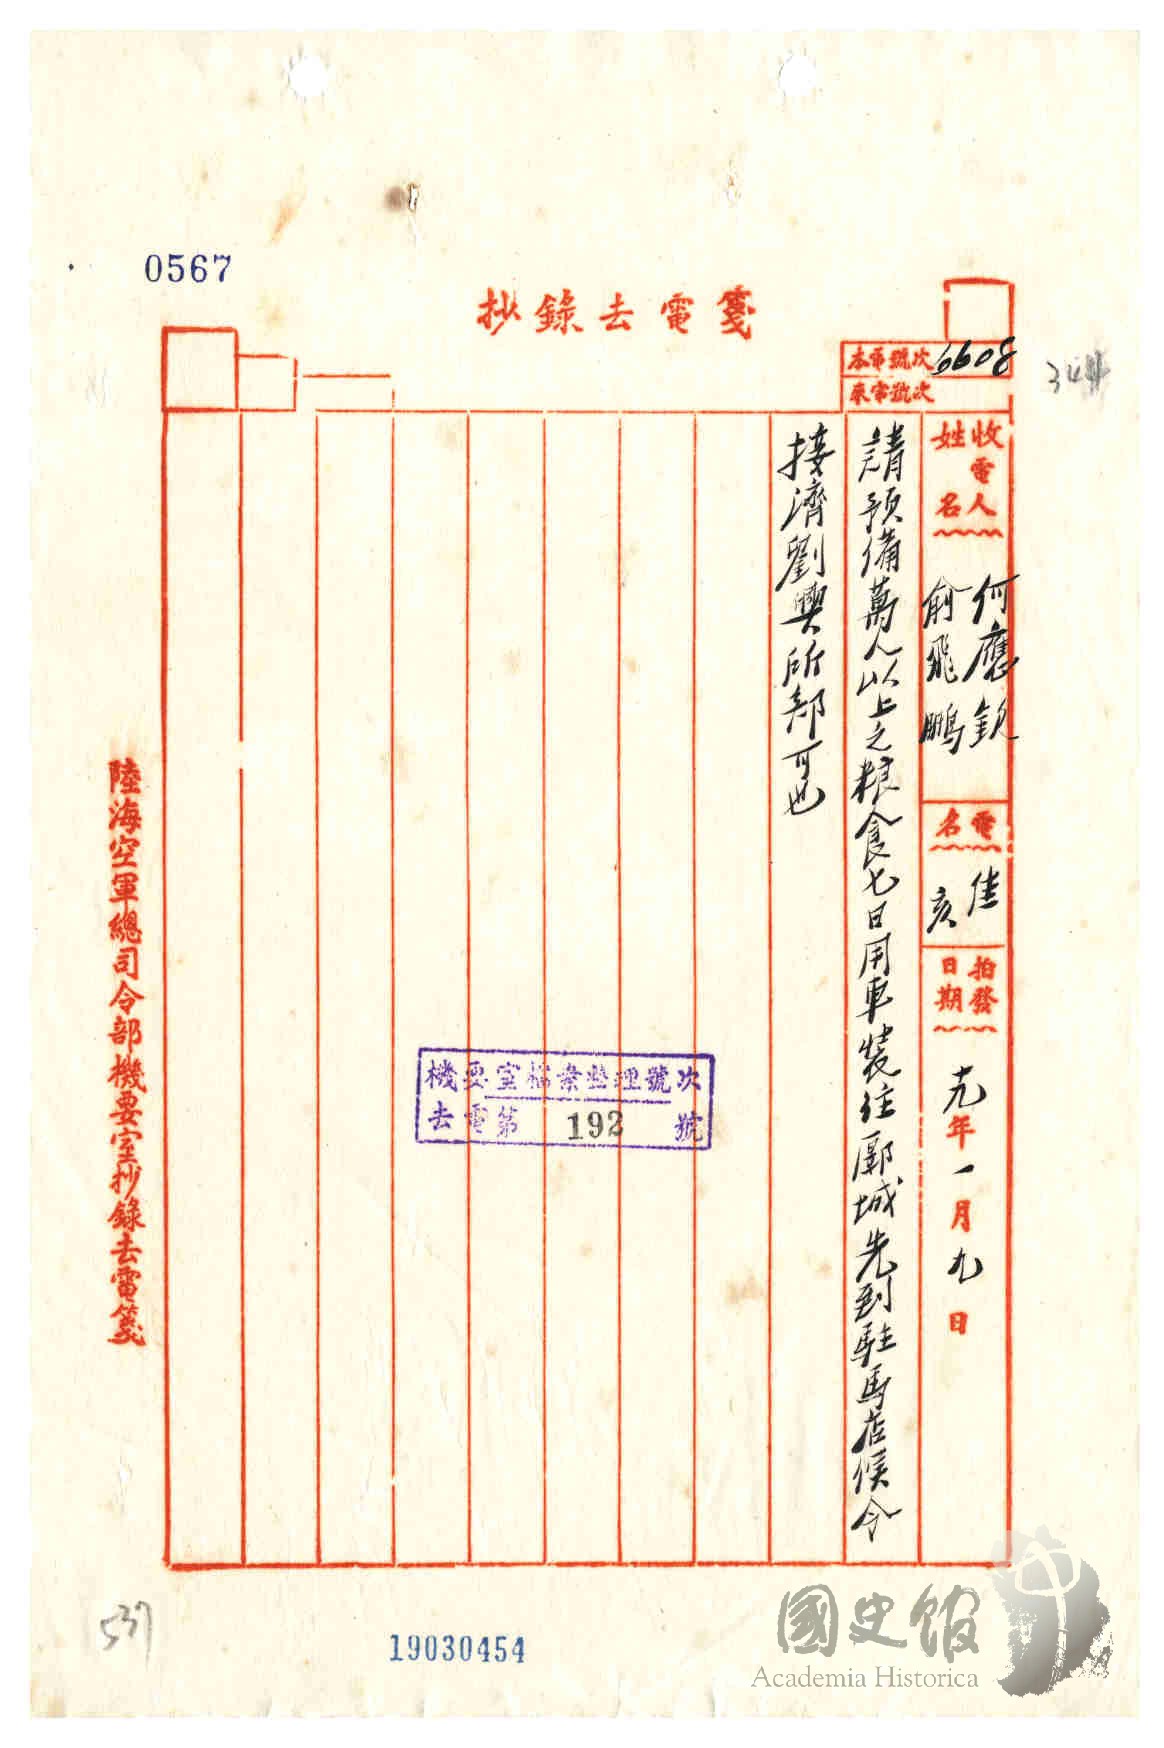 0567
抄錄去電箋
本電號次 6608
來電號次
344
收電人姓名
何應欽
俞飛鵬
電名
佳亥
拍發日期
十九年一月九日
請預備萬人以上之粮食七日用車裝往郾城先到駐馬店候令
接濟劉興所部可也
機要室檔案整理號次
去電第 192 號
陸海空軍總司令部機要室抄錄去電箋
537
19030454
國史館
Academia Historica